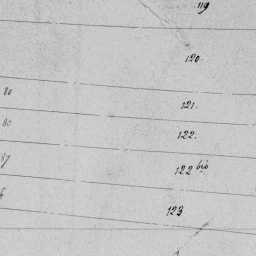 119
120.
80
121.
122.
122 bis
123